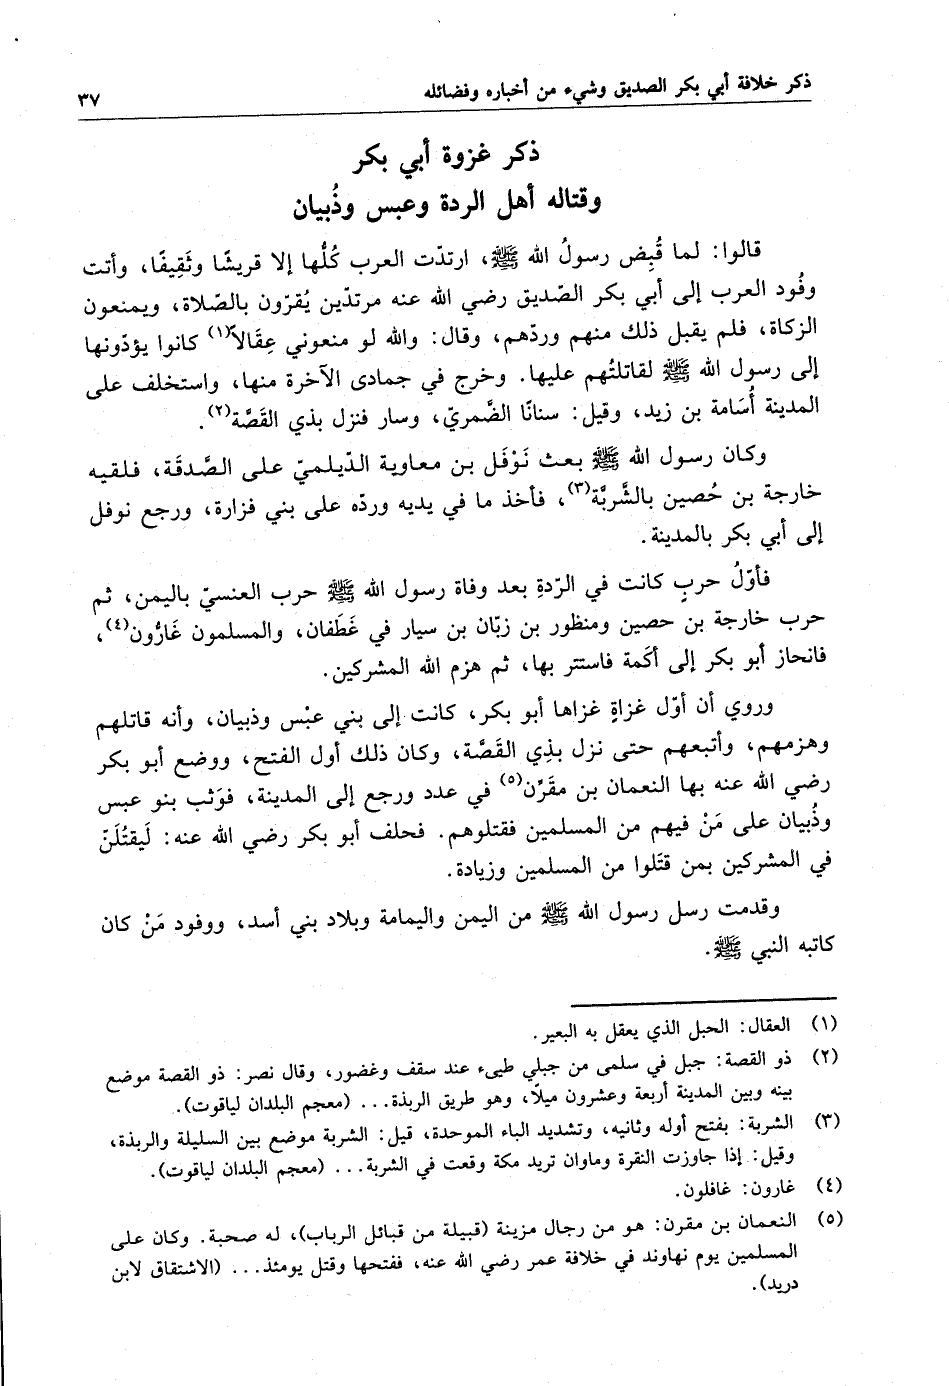 ذكر خلافة أبي بكر الصديق وشيء من أخباره وفضائله ٣٧
ذكر غزوة أبي بكر
وقتاله أهل الردة وعبس وذُبيان
قالوا: لما قُبِض رسولُ الله ﷺ، ارتدّت العرب كُلُّها إلا قريشًا وثَقِيفًا، وأتت
وفُود العرب إلى أبي بكر الصّديق رضي الله عنه مرتدّين يُقرّون بالصّلاة، ويمنعون
الزكاة، فلم يقبل ذلك منهم وردّهم، وقال: والله لو منعوني عِقَالاً(١) كانوا يؤدّونها
إلى رسول الله ﷺ لقاتلتُهم عليها. وخرج في جمادى الآخرة منها، واستخلف على
المدينة أُسَامة بن زيد، وقيل: سنانًا الضَّمريّ، وسار فنزل بذي القَصَّة(٢).
وكان رسول الله ﷺ بعث نَوْفَل بن معاوية الدّيلميّ على الصَّدقَة، فلقيه
خارجة بن حُصين بالشَّربَّة(٣)، فأخذ ما في يديه وردّه على بني فزارة، ورجع نوفل
إلى أبي بكر بالمدينة.
فأوّلُ حربٍ كانت في الرّدةِ بعد وفاة رسول الله ﷺ حرب العنسيّ باليمن، ثم
حرب خارجة بن حصين ومنظور بن زبّان بن سيار في غَطَفان، والمسلمون غَارُّون(٤)،
فانحاز أبو بكر إلى أكَمة فاستتر بها، ثم هزم الله المشركين.
وروي أن أوّل غزاةٍ غزاها أبو بكر، كانت إلى بني عبْس وذبيان، وأنه قاتلهم
وهزمهم، وأتبعهم حتى نزل بذِي القَصَّة، وكان ذلك أول الفتح، ووضع أبو بكر
رضي الله عنه بها النعمان بن مقرِّن(٥) في عدد ورجع إلى المدينة، فوَثب بنو عبس
وذُبيان على مَنْ فيهم من المسلمين فقتلوهم. فحلف أبو بكر رضي الله عنه: لَيقتُلَنّ
في المشركين بمن قتَلوا من المسلمين وزيادة.
وقدمت رسل رسول الله ﷺ من اليمن واليمامة وبلاد بني أسد، ووفود مَنْ كان
كاتبه النبي ﷺ.
(١) العقال: الحبل الذي يعقل به البعير.
(٢) ذو القصة: جبل في سلمى من جبلي طيىء عند سقف وغضور، وقال نصر: ذو القصة موضع
بينه وبين المدينة أربعة وعشرون ميلًا، وهو طريق الربذة... (معجم البلدان لياقوت).
(٣) الشربة: بفتح أوله وثانيه، وتشديد الباء الموحدة، قيل: الشربة موضع بين السليلة والربذة،
وقيل: إذا جاوزت النقرة وماوان تريد مكة وقعت في الشربة... (معجم البلدان لياقوت).
(٤) غارون: غافلون.
(٥) النعمان بن مقرن: هو من رجال مزينة (قبيلة من قبائل الرباب)، له صحبة. وكان على
المسلمين يوم نهاوند في خلافة عمر رضي الله عنه، ففتحها وقتل يومئذ... (الاشتقاق لابن
دريد).